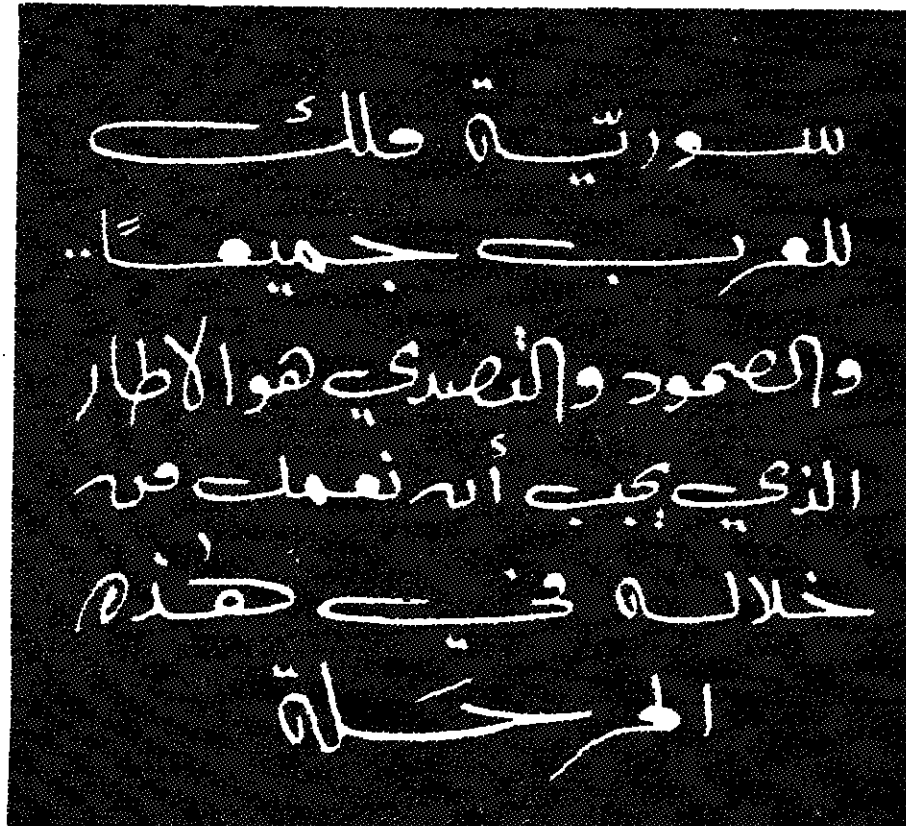 سوريّة ملك
للعرب جميعًا..
والصمود والتصدي هو الاطار
الذي يجب أن نعمل من
خلاله في هذه
المرحَلة